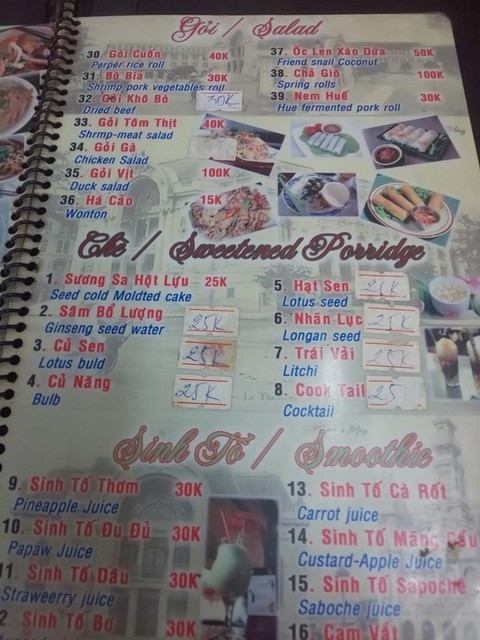 Gỏi / Salad
30. Gỏi Cuốn 40K
Perper rice roll
31. Bò Bía 30K
Shrimp pork vegetables roll
32. Gỏi Khô Bò 30K
Dried beef
33. Gỏi Tôm Thịt 40K
Shrmp-meat salad
34. Gỏi Gà
Chicken Salad
35. Gỏi Vịt 100K
Duck salad
36. Há Cảo 15K
Wonton
37. Ốc Len Xào Dừa 50K
Friend snail Coconut
38. Chả Giò 100K
Spring rolls
39. Nem Huế 30K
Hue fermented pork roll
Chè / Sweetened Porridge
1. Sương Sa Hột Lựu 25K
Seed cold Moldted cake
2. Sâm Bổ Lượng 25K
Ginseng seed water
3. Củ Sen 25K
Lotus buld
4. Củ Năng 25K
Bulb
5. Hạt Sen 25K
Lotus seed
6. Nhãn Lục 25K
Longan seed
7. Trái Vải 25K
Litchi
8. Cook Tail 25K
Cocktail
Sinh Tố / Smoothie
9. Sinh Tố Thơm 30K
Pineapple Juice
10. Sinh Tố Đu Đủ 30K
Papaw Juice
11. Sinh Tố Dâu 30K
Straweerry juice
2. Sinh Tố Bơ 30K
13. Sinh Tố Cà Rốt
Carrot juice
14. Sinh Tố Mãng Cầu
Custard-Apple Juice
15. Sinh Tố Sapoche
Saboche juice
16. Cam Vắt